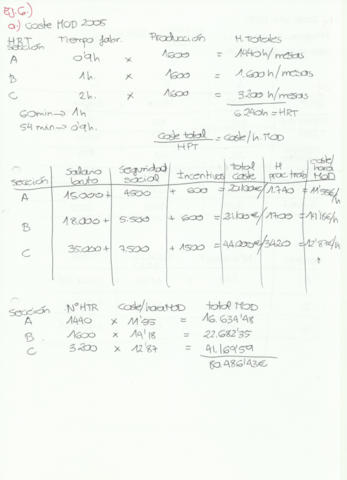 Ej.6.)
a) Coste MOD 2005
HRT Tiempo fabr. Producción H Totales
Sección
A 0'9h x 1600 = 1440h/mesas
B 1h. x 1600 = 1.600h/mesas
C 2h. x 1600 = 3200h/mesas
60min → 1h 6.240h = HRT
54 min → 0'9h.
coste total / HPT = coste/h. MOD
sección Salario bruto Seguridad social Incentivos total coste H prac trab coste/hora MOD
A 15.000 + 4500 + 600 = /1.740 =
B 18.000 + 5.500 + 600 = /1700 =
C 35.000 + 7.500 + 1500 = 44.000€/3420 = 12'87€/h
sección NºHTR Coste/hora MOD total MOD
A 1440 x 11'55 = 16.634'48
B 1600 x 14'18 = 22.682'35
C 3200 x 12'87 = 41.169'59
80.486'43€